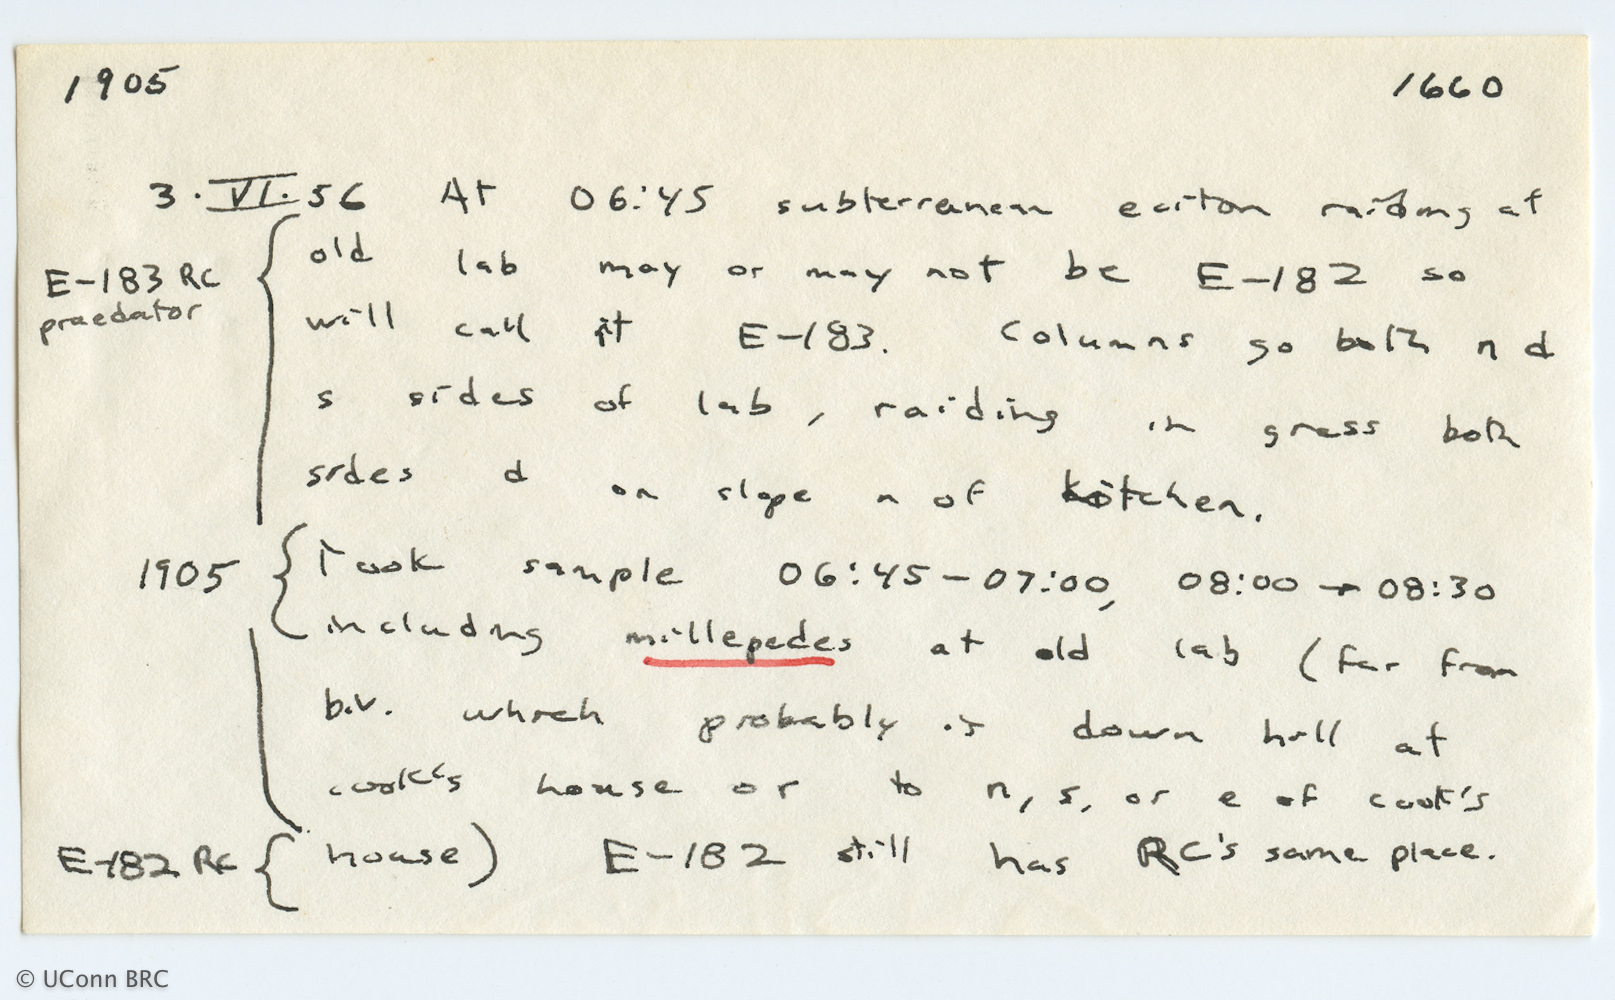 1905 1660
3.VI.56 At 06:45 subterranean eciton raiding at
E-183 RC praedator
old lab may or may not be E-182 so
will call it E-183. Columns go both n d
s sides of lab, raiding in grass both
sides d on slope n of kitchen.
1905 Took sample 06:45-07:00, 08:00 → 08:30
including millepedes at old lab (far from
b.v. which probably is down hill at
cook's house or to n, s, or e of cook's
E-182 RC house) E-182 still has RC's same place.
© UConn BRC